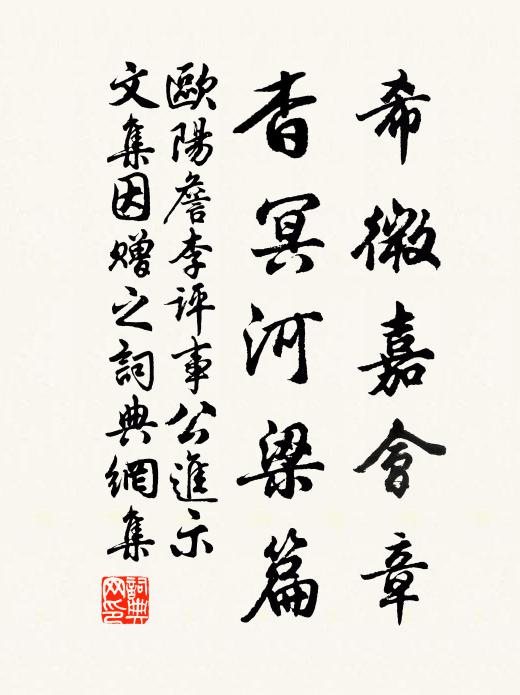 希微嘉會章
杳冥河梁篇
歐陽詹李評事公進示
文集因贈之詞典網集
詞典網印